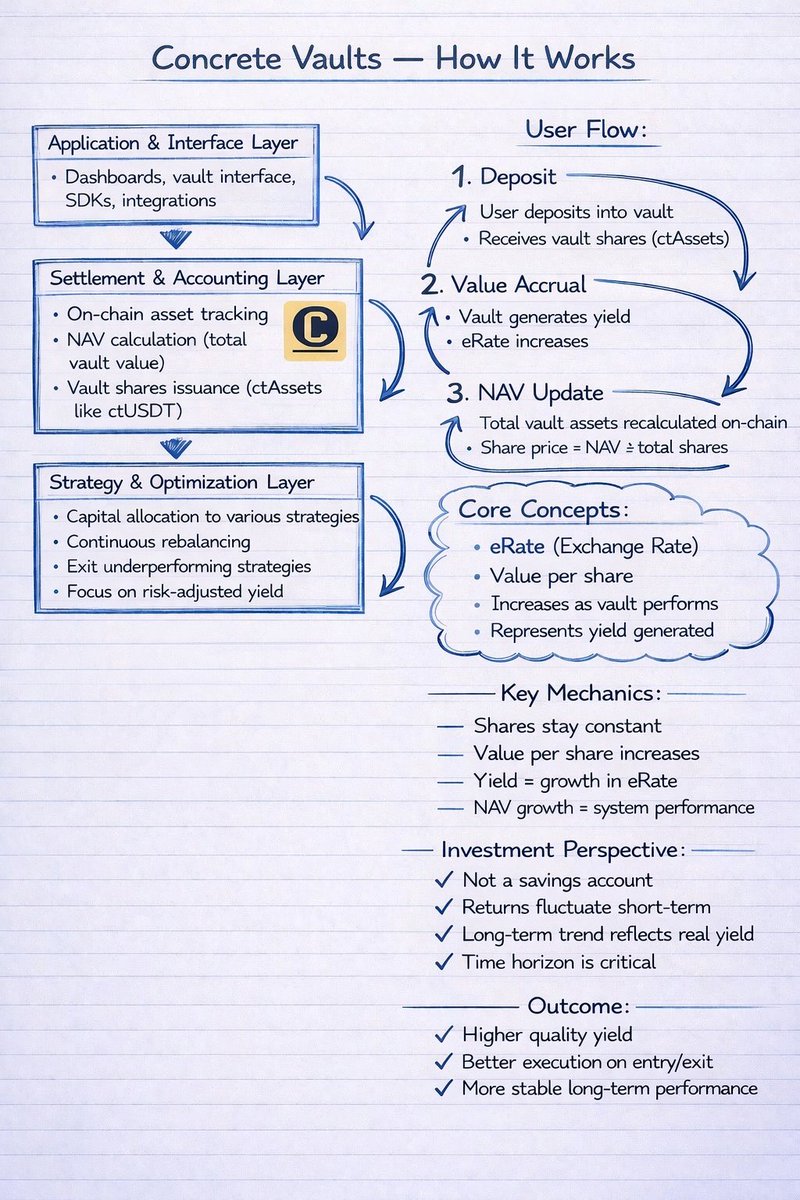 Concrete Vaults — How It Works
Application & Interface Layer
• Dashboards, vault interface,
SDKs, integrations
Settlement & Accounting Layer
• On-chain asset tracking
• NAV calculation (total
vault value)
• Vault shares issuance (ctAssets
like ctUSDT)
C
Strategy & Optimization Layer
• Capital allocation to various strategies
• Continuous rebalancing
• Exit underperforming strategies
• Focus on risk-adjusted yield
User Flow:
1. Deposit
User deposits into vault
• Receives vault shares (ctAssets)
2. Value Accrual
• Vault generates yield
• eRate increases
3. NAV Update
Total vault assets recalculated on-chain
• Share price = NAV ÷ total shares
Core Concepts:
• eRate (Exchange Rate)
• Value per share
• Increases as vault performs
• Represents yield generated
Key Mechanics:
— Shares stay constant
— Value per share increases
— Yield = growth in eRate
— NAV growth = system performance
Investment Perspective:
✓ Not a savings account
✓ Returns fluctuate short-term
✓ Long-term trend reflects real yield
✓ Time horizon is critical
Outcome:
✓ Higher quality yield
✓ Better execution on entry/exit
✓ More stable long-term performance